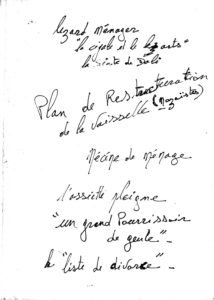 Lezard Ménager
"la cigale et les arts"
la Sieste de Dali
Plan de Restructuration
de la Vaisselle (Mozaïstes)
Mécène de ménage
l'assiette pleigne
"un grand Pourrissoir
de geule" -
la "liste de divorce" -